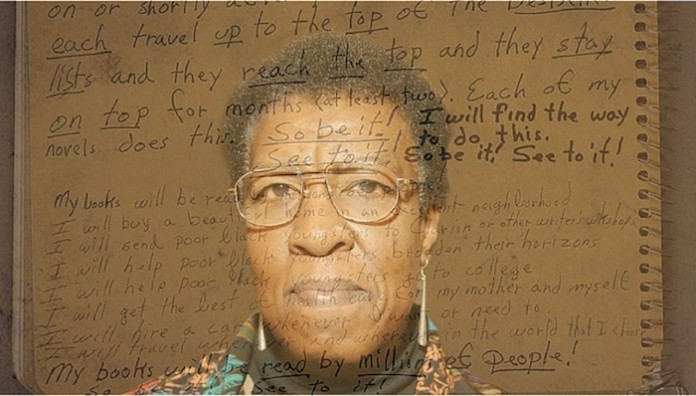 on or shortly
each travel up to the top of the
lists and they reach the top and they stay
on top for months (at least two). Each of my
novels does this.
So be it! I will find the way
See to it! to do this.
So be it! See to it!
My books will be read
I will buy a beautiful home in an excellent neighborhood
I will send poor black youngsters to Clarion or other writer's workshops
I will help poor black youngsters broaden their horizons
I will help poor black youngsters go to college
I will get the best of health care for my mother and myself
I will hire a car whenever I want or need to.
I will travel whenever and wherever in the world that I choose
My books will be read by millions of people!
So See to it!